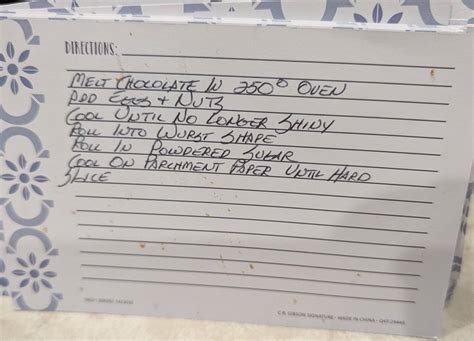 DIRECTIONS:
MELT CHOCOLATE IN 250° OVEN
ADD EGGS + NUTS
COOL UNTIL NO LONGER SHINY
ROLL INTO WURST SHAPE
ROLL IN POWDERED SUGAR
COOL ON PARCHMENT PAPER UNTIL HARD
SLICE
C.R. GIBSON SIGNATURE • MADE IN CHINA •